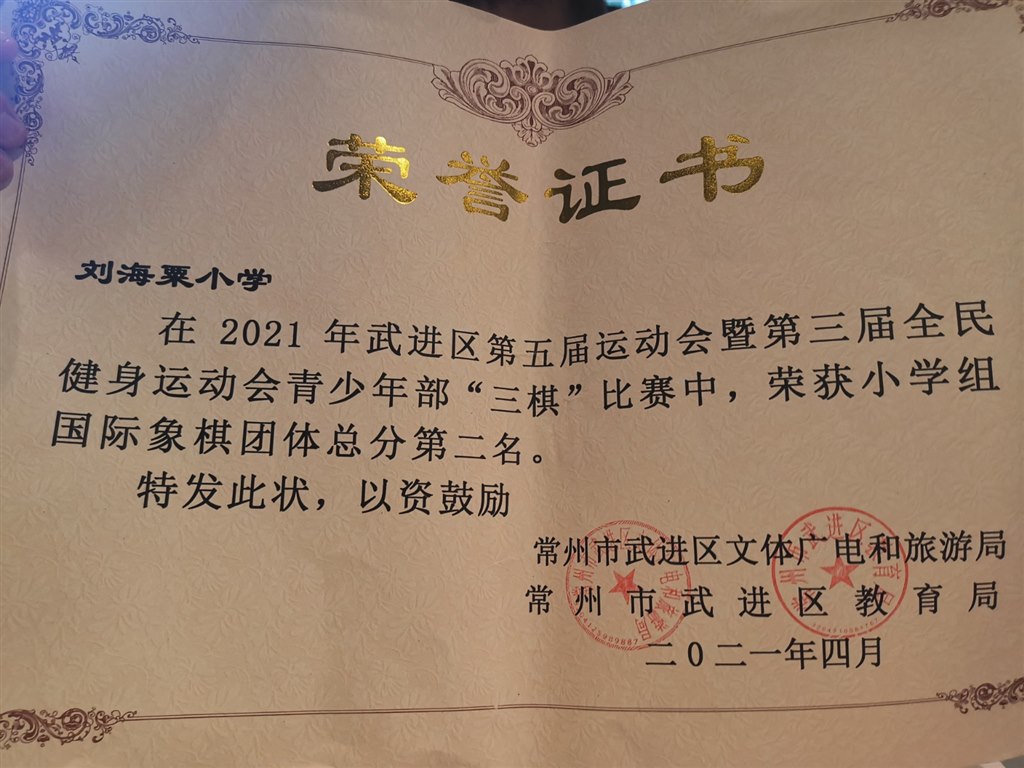 荣誉证书
刘海粟小学
在 2021 年武进区第五届运动会暨第三届全民
健身运动会青少年部“三棋”比赛中，荣获小学组
国际象棋团体总分第二名。
特发此状，以资鼓励
常州市武进区文体广电和旅游局
常州市武进区教育局
二0二一年四月